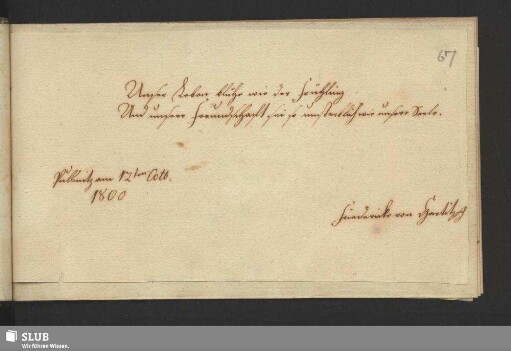 67
Unser Leben blühe wie der Frühling
Und unsere Freundschaft sei so unsterblich wie unsere Seele.
Pulsnitz am 12ten Octb.
1800
Friederike von
SLUB
Wir führen Wissen.